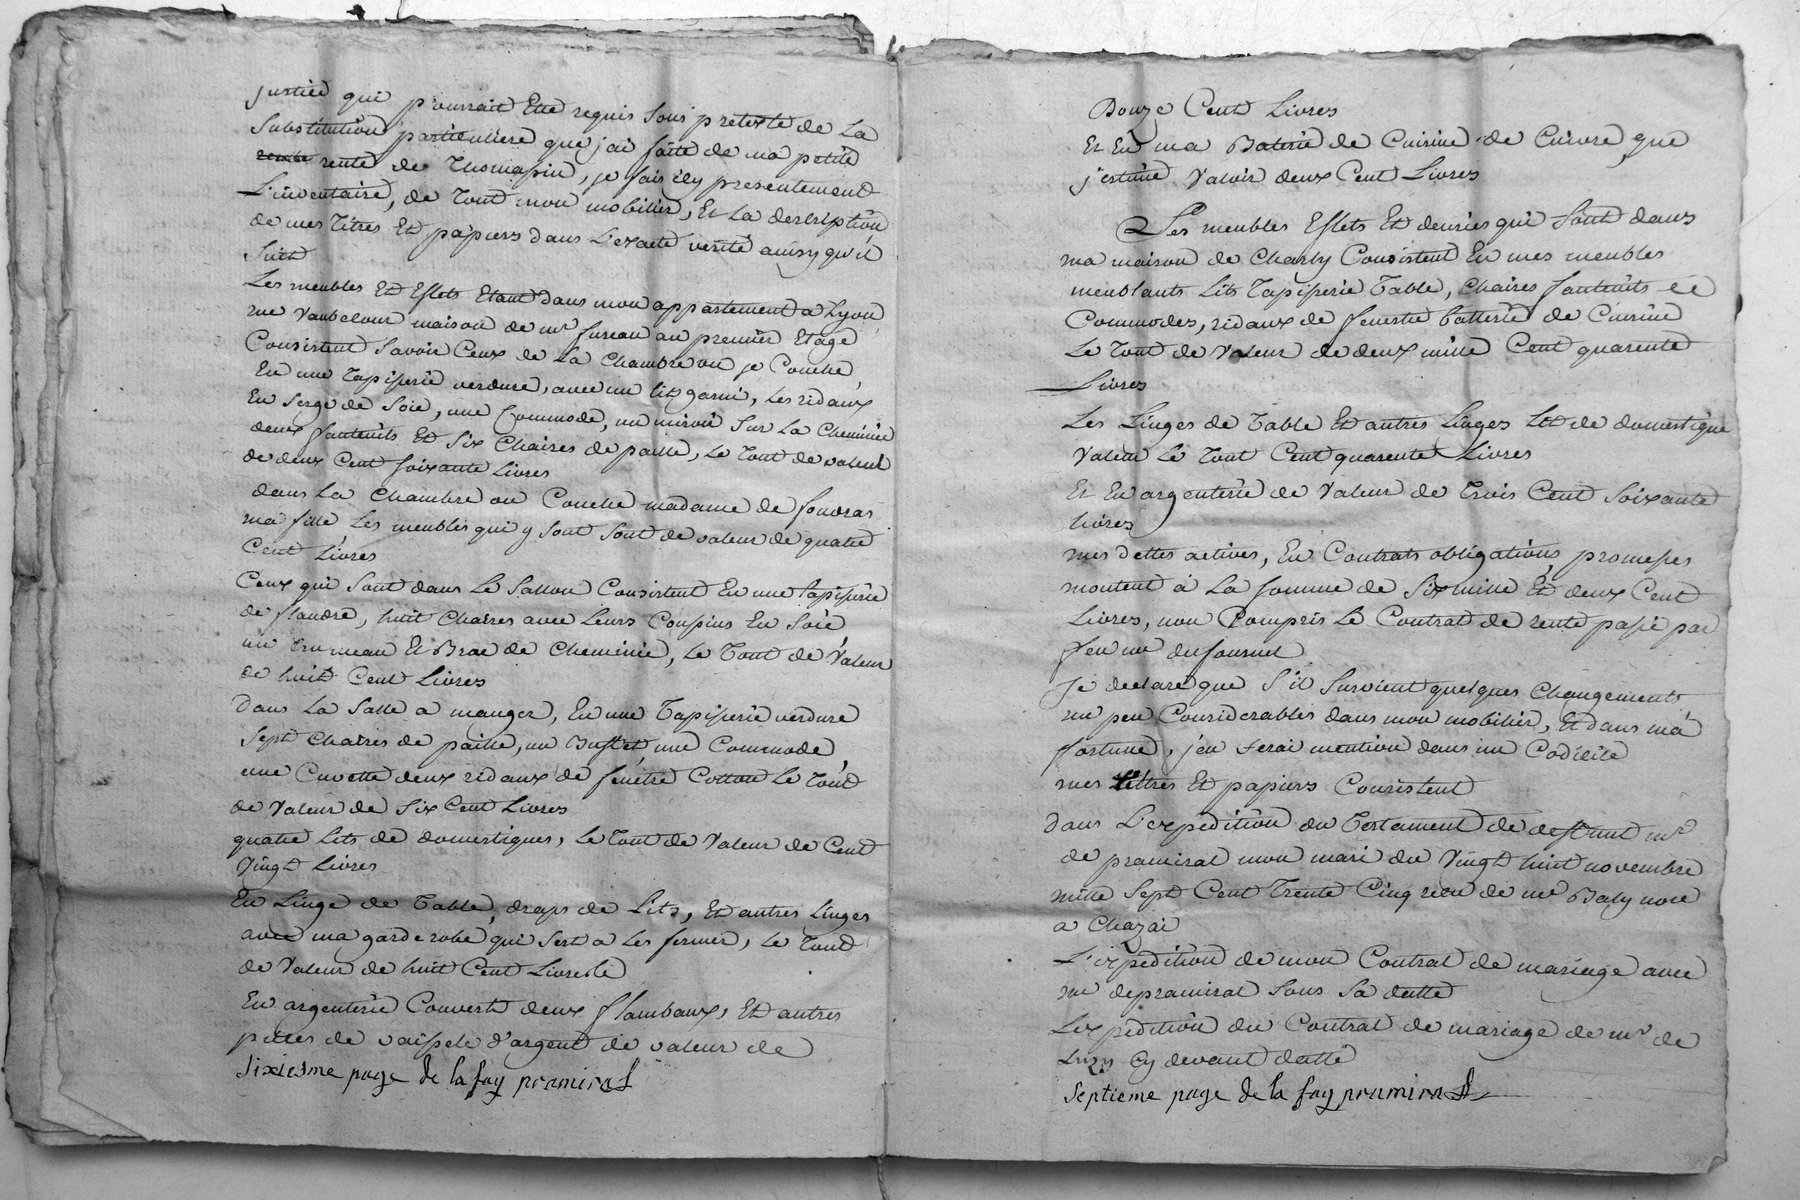 justice qui pourrait Etre requis sous pretexte de La
Substitution particuliere que j'ai faitte de ma petite
rente de Thomapin, je fais icy presentement
L'inventaire, de Tout mon mobilier, Et La description
de mes Titres Et papiers dans L'exacte verité ainsy qu'il
Suit
Les meubles Et Effets Etant dans mon appartement a Lyon
rue Vaubecour maison de mr fureau au premier Etage
Consistent Savoir Ceux de La Chambre ou je Couche
En une Tapisserie verdure, avec un lit garni, Les ridaux
En Serge de Soie, une Commode, un miroir Sur La Cheminée
deux fauteuils Et Six Chaires de paille, Le Tout de valeur
de deux Cent soixante Livres
dans La Chambre ou Couche madame de fouras
ma fille Les meubles qui y Sont Sont de valeur de quatre
Cent Livres
Ceux qui Sont dans Le Sallon Consistent En une tapisserie
de flandre, huit Chaires avec Leurs Coussins En Soie
un trumeau Et Bras de Cheminée, Le Tout de Valeur
de huit Cent Livres
Dans La Salle a manger, En une Tapisserie verdure
Sept Chaires de paille, un Buffet une Commode
une Cuvette deux ridaux de fenetre Cotton Le Tout
de Valeur de Six Cent Livres
quatre Lits de domestiques, Le Tout de Valeur de Cent
Vingt Livres
En Linge de Table, draps de Lits, Et autres Linges
avec ma garderobe qui Sert a Les fermer, Le Tout
de Valeur de huit Cent Livres
En argenterie Couverts deux flambaux, Et autres
pieces de vaissele d'argent de valeur de
Sixiesme page de la fay pramiral
Douze Cent Livres
Et En ma Baterie de Cuisine de Cuivre que
j'estime Valoir deux Cent Livres
Les meubles Effets Et denrées qui Sont dans
ma maison de Charly Consistent En mes meubles
meublants Lits Tapisserie Table, Chaires fauteuils Et
Commodes, ridaux de fenestre batterie de Cuisine
Le Tout de Valeur de deux mille Cent quarente
Livres
Les Linges de Table Et autres Linges Lit de domestique
Valeur Le Tout Cent quarente Livres
Et En argenterie de Valeur de Trois Cent Soixante
livres
mes dettes actives, En Contrats obligations, promesses
montent à La somme de Six mille Et deux Cent
Livres, non Compris Le Contrat de rente passé par
feu mr du fournel
Je declare que S'il Survient quelques Changements
un peu Considerables dans mon mobilier, Et dans ma
fortune, j'en ferai mention dans un Codicile
mes titres Et papiers Consistent
dans L'expedition du Testament de deffunt mr
de pramiral mon mari du Vingt huit novembre
mille Sept Cent Trente Cinq receu de me Baly nore
a Chazai
L'expedition de mon Contrat de mariage avec
mr depramiral Sous Sa datte
L'expedition du Contrat de mariage de mr de
Luzy Cy devant datté
Septieme page de la fay pramiral